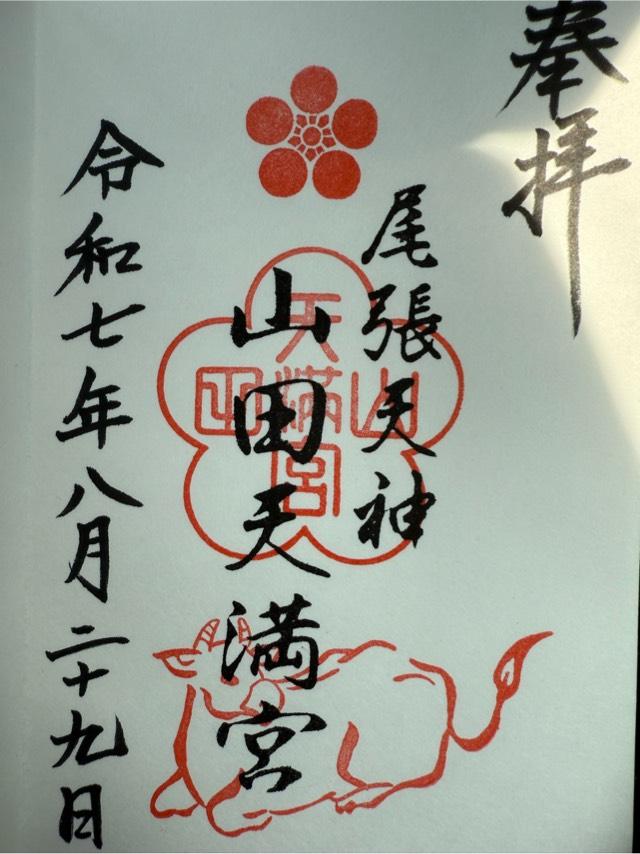 奉拝
尾張天神
山田天満宮
山田天満宮
令和七年八月二十九日